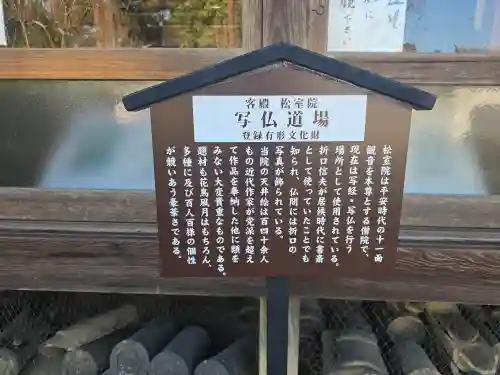 客殿 松室院
写仏道場
登録有形文化財
松室院は平安時代の十一面
観音を本尊とする僧院で、
現在は写経・写仏を行う
場所として使用されている。
折口信夫が居候時代に書斎
として使っていたことでも
知られ、仏間には折口の
写真が飾られている。
当院の天井絵は百四十余人
もの近代作家が党派を超え
て作品を奉納した他に類を
みない大変貴重なものである。
題材も花鳥風月はもちろん、
多種に及び百人百様の個性
が競いあう豪華さである。